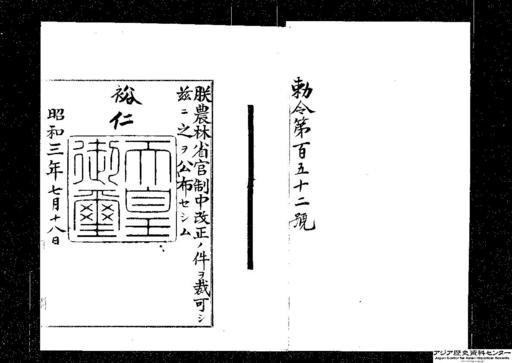 勅令第百五十二號
朕農林省官制中改正ノ件ヲ裁可シ
茲ニ之ヲ公布セシム
裕仁
天皇
御璽
昭和三年七月十八日
アジア歴史資料センター
Japan Center for Asian Historical Records